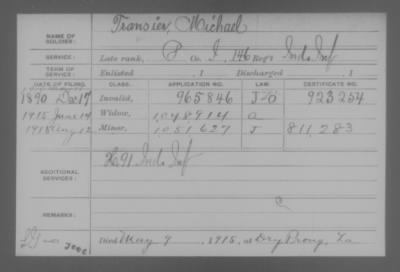 NAME OF SOLDIER: Transier, Michael
SERVICE: Late rank, P Co. I, 146 Reg't Ind. Inf
TERM OF SERVICE: Enlisted , 1 Discharged , 1
DATE OF FILING. CLASS. APPLICATION NO. LAW. CERTIFICATE NO.
1890 Dec 17 Invalid, 965846 923254
1915 June 14 Widow, 1,048,914 a
1918 Aug 12 Minor, 1,051,627 J 811,283
ADDITIONAL SERVICES: H. 91 Ind. Inf
REMARKS:
Died May 9, 1915, at Dry Prong, La